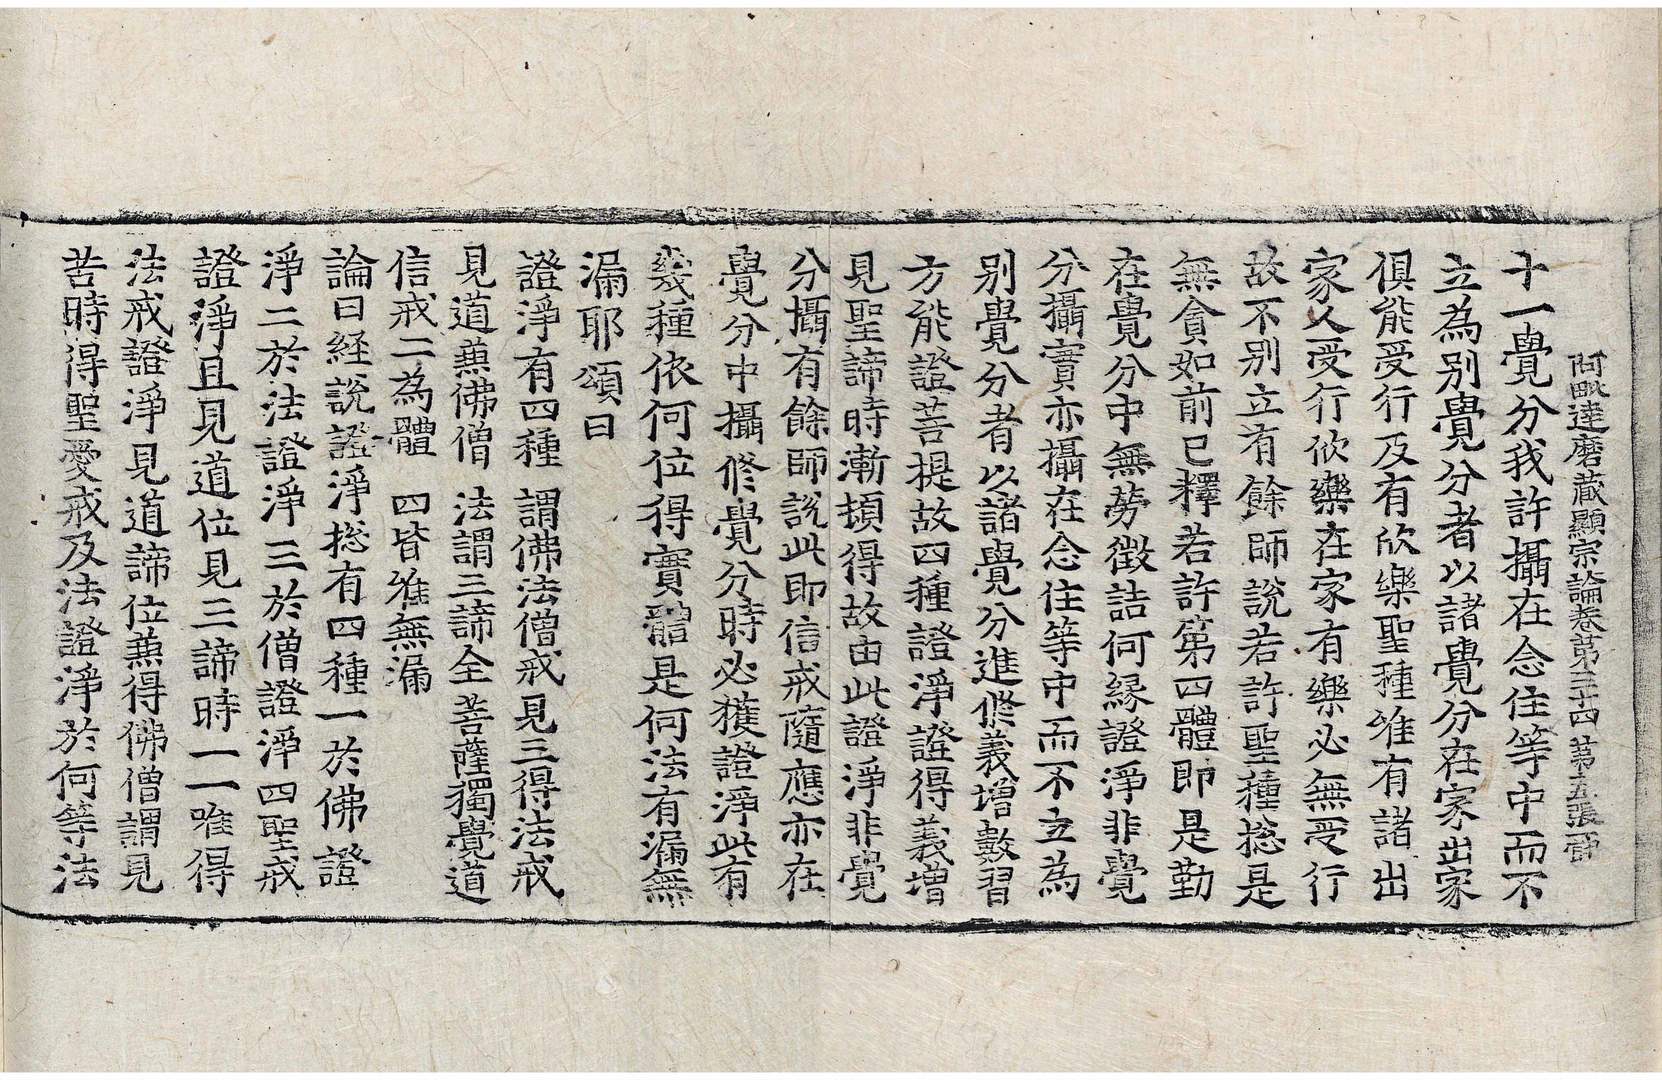 阿毗達磨藏顯宗論卷第三十四 第五張 啚
十一覺分我許攝在念住等中而不
立為別覺分者以諸覺分在家出家
俱能受行及有欣樂聖種唯有諸出
家人受行欣樂在家有樂必無受行
故不別立有餘師說若許聖種揔是
無貪如前已釋若許第四體即是勤
在覺分中無勞徵詰何緣證淨非覺
分攝實亦攝在念住等中而不立為
別覺分者以諸覺分進修義增數習
方能證菩提故四種證淨證得義增
見聖諦時漸頓得故由此證淨非覺
分攝有餘師說此即信戒隨應亦在
覺分中攝修覺分時必獲證淨此有
幾種依何位得實體是何法有漏無
漏耶頌曰
證淨有四種 謂佛法僧戒 見三得法戒
見道兼佛僧 法謂三諦全 菩薩獨覺道
信戒二為體 四皆唯無漏
論曰経說證淨揔有四種一於佛證
淨二於法證淨三於僧證淨四聖戒
證淨且見道位見三諦時一一唯得
法戒證淨見道諦位兼得佛僧謂見
苦時得聖愛戒及法證淨於何等法